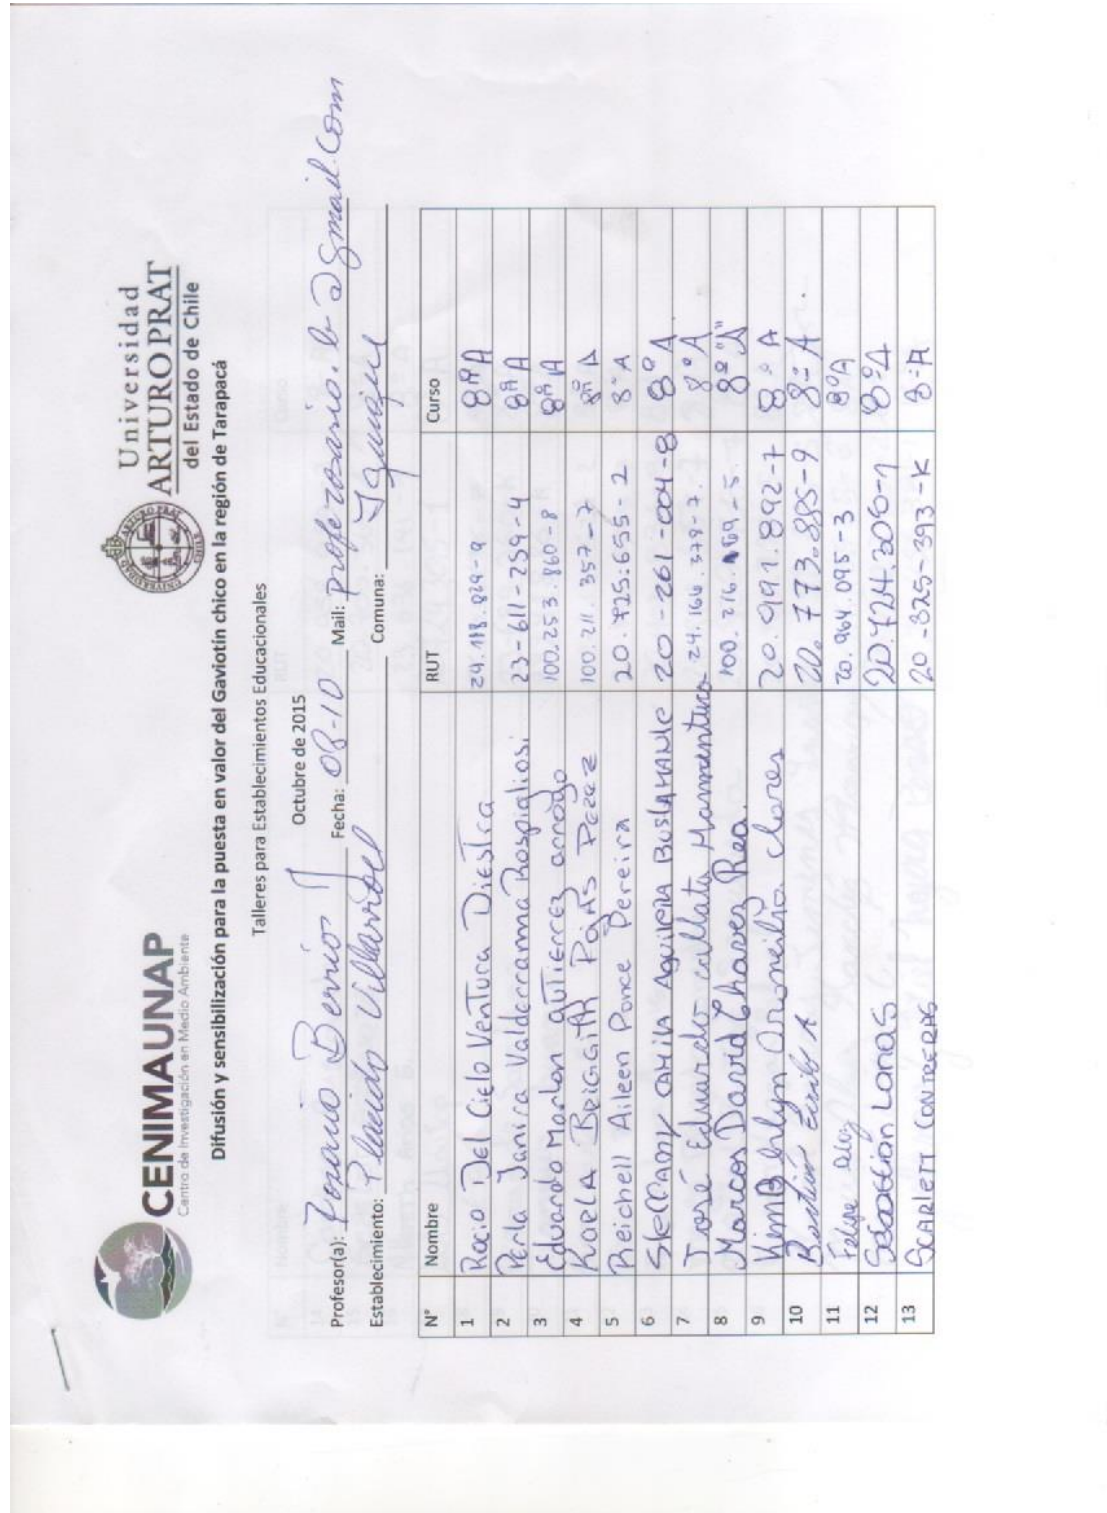 CENIMAUNAP
Centro de Investigación en Medio Ambiente
Universidad
ARTURO PRAT
del Estado de Chile
Difusión y sensibilización para la puesta en valor del Gaviotín chico en la región de Tarapacá
Talleres para Establecimientos Educacionales
Octubre de 2015
Profesor(a): Rosario Berrios Fecha: 08-10 Mail: proferosario.b@gmail.com
Establecimiento: Placido Villarroel Comuna: Iquique
N° Nombre RUT Curso
1 Rocio Del Cielo Ventura Diestra 24.118.029-9 8ºA
2 Perla Janira Valderrama Rospigliosi 23-611-259-4 8ºA
3 Eduardo Marlon gutierrez arroyo 100.253.860-8 8ºA
4 Karla Briggith Rojas Perez 100.211.357-7 8º A
5 Reichell Aileen Ponce Pereira 20.925.655-2 8ºA
6 CAMILA AguileRA BustAMANte 20-261-004-8 8ºA
7 José Eduardo collata Mamantura 24.166.579-7. 8ºA
8 Marcos David Chavez Rea. 100.216. 8º"A"
9 20.991.892-7 8ºA
10 Bastián 20.773.885-9 8ºA
11 Felipe Diaz 20.964.095-3 8ºA
12 Sebastian Lanas 20.724.306-1 8ºA
13 ScARlett CONTRERAS 20-325-393-K 8ºA